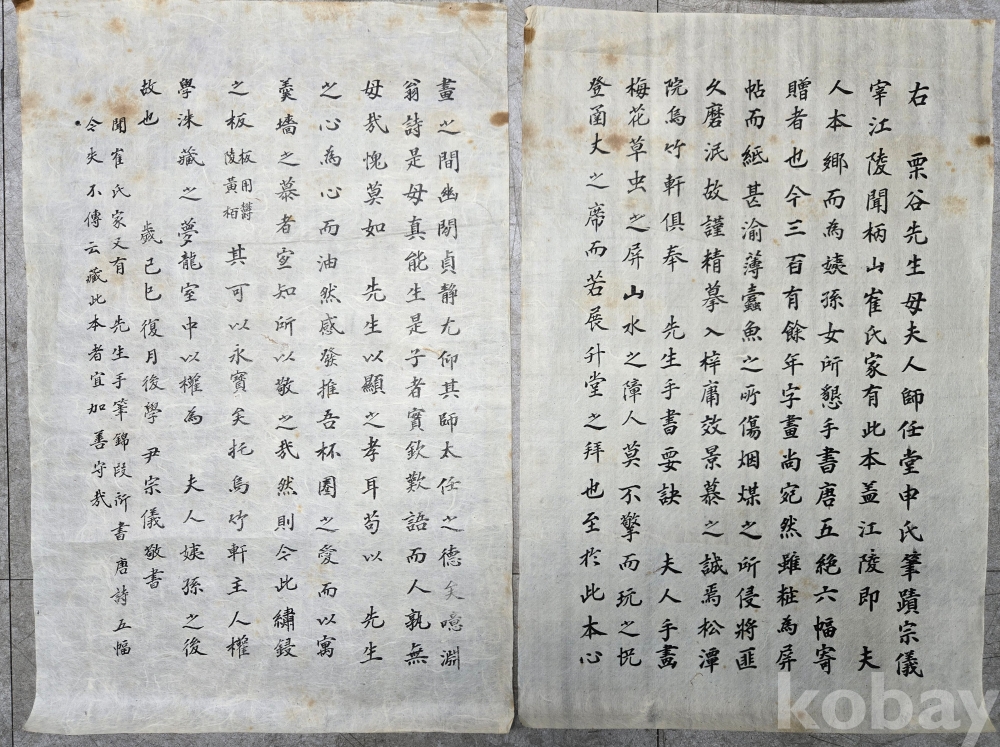 右 栗谷先生母夫人師任堂申氏筆蹟宗儀
宰江陵聞柄山崔氏家有此本盖江陵即 夫
人本鄉而為姨孫女所懇手書唐五絶六幅寄
贈者也今三百有餘年字畫尚宛然雖粧為屏
帖而紙甚渝薄蠹魚之所傷烟煤之所侵將匪
久磨泯故謹精摹入梓庸效景慕之誠焉松潭
院烏竹軒俱奉 先生手書要訣 夫人手畫
梅花草虫之屏山水之障人莫不擎而玩之怳
登函丈之席而若展升堂之拜也至於此本心
畫之間幽閒貞静尤仰其師太任之德矣噫淵
翁詩是母真能生是子者實欽歎語而人孰無
母哉愧莫如 先生以顯之孝耳苟以 先生
之心為心而油然感發推吾杯圈之愛而以寓
羹墻之慕者宜知所以敬之哉然則今此繡鋟
之板板用欝陵黃栢其可以永寶矣托烏竹軒主人權
學洙藏之夢龍室中以權為 夫人姨孫之後
故也 歲己巳復月後學尹宗儀敬書
聞崔氏家又有 先生手筆錦段所書唐詩五幅
今失不傳云藏此本者宜加善守哉
kobay